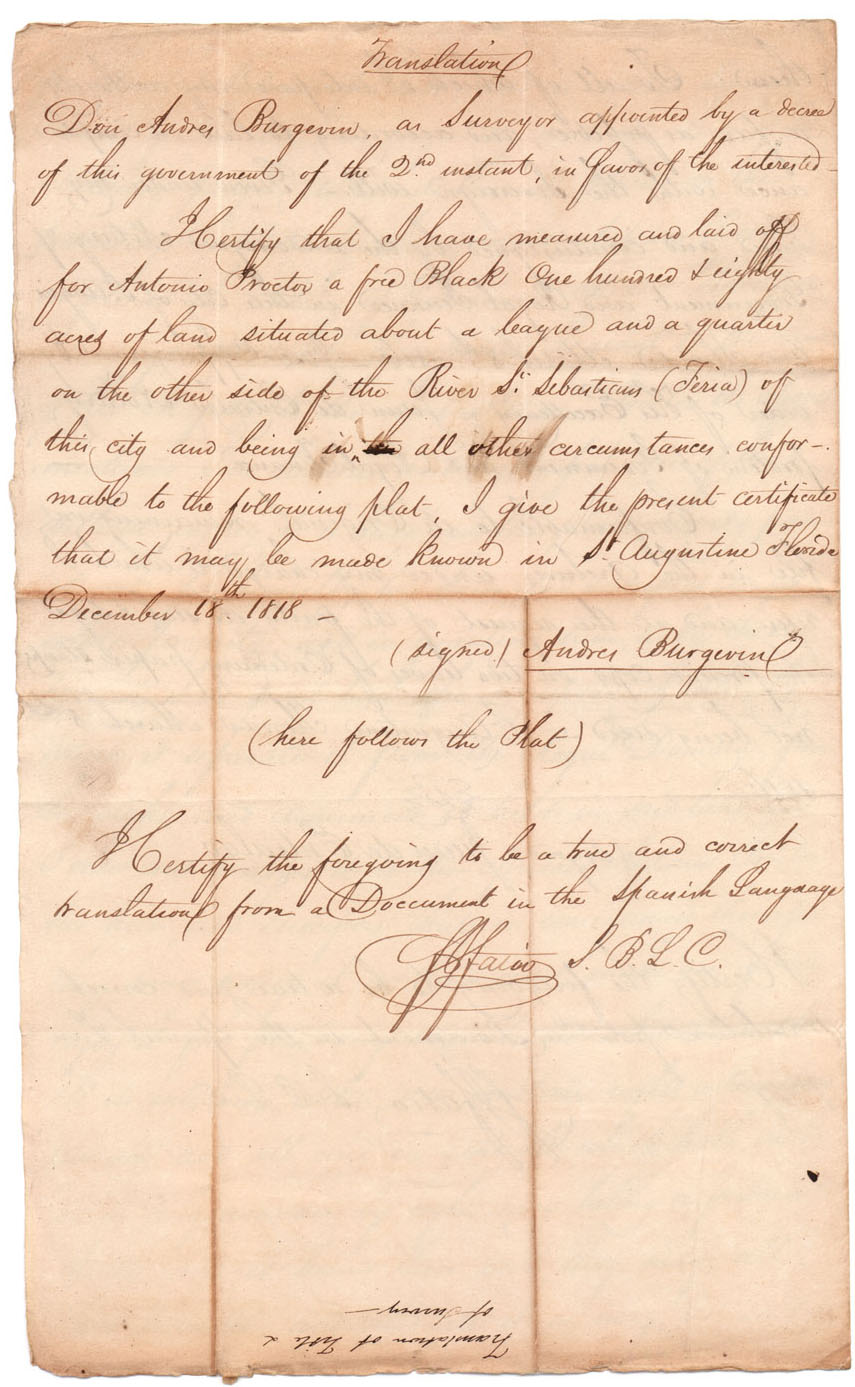 Translation
Don Andres Burgevin, as Surveyor appointed by a decree
of this government of the 2nd instant, in favor of the interested -
I Certify that I have measured and laid off
for Antonio Proctor a free Black One hundred & eighty
acres of land situated about a league and a quarter
on the other side of the River St. Sebastians (Feria) of
this city and being in all other circumstances confor-
mable to the following plat, I give the present certificate
that it may be made known in St. Augustine of Florida
December 18th. 1818 -
(signed) Andres Burgevin
(here follows the Plat)
I Certify the foregoing to be a true and correct
translation from a Doccument in the Spanish Language
S. B. L. C.
Translation of Title &
of Survey -